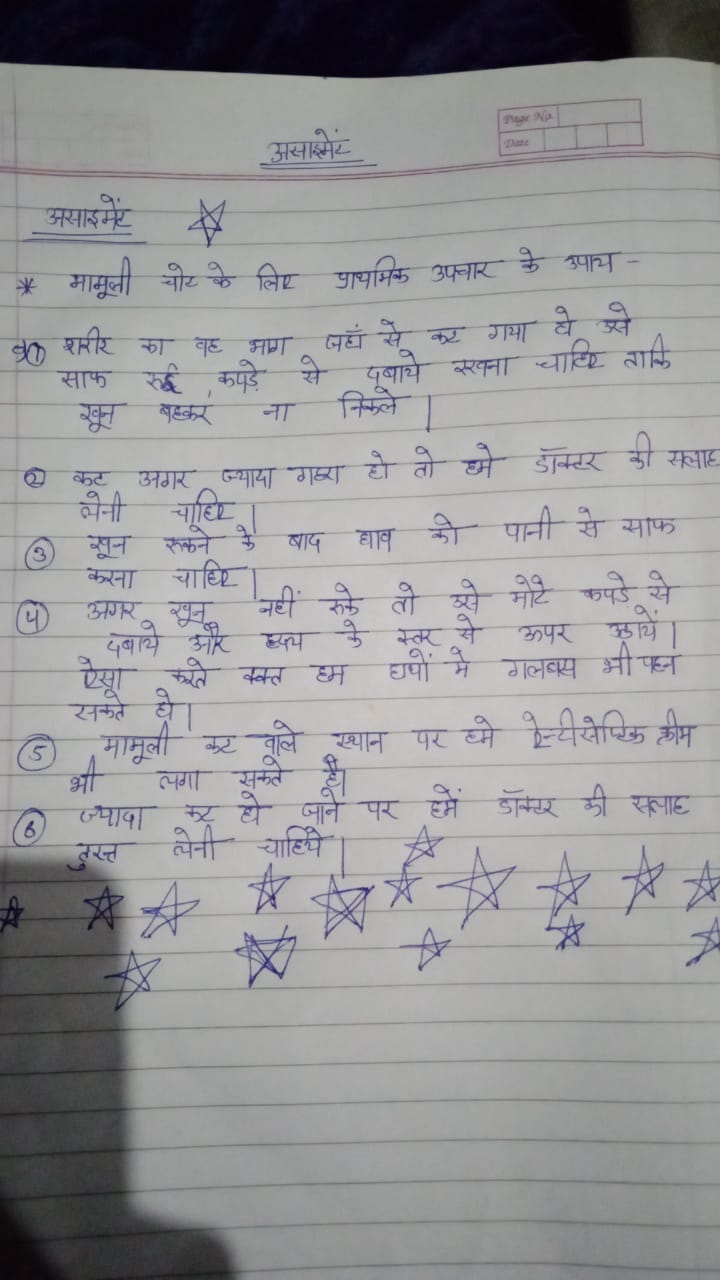 Page No.
Date
असाइमेंट
असाइमेंट
* मामूली चोट के लिए प्राथमिक उपचार के उपाय -
① शरीर का वह भाग जहाँ से कट गया हो उसे
साफ रुई, कपड़े से दबाये रखना चाहिए ताकि
खून बहकर ना निकले |
② कट अगर ज्यादा गहरा हो तो हमे डॉक्टर की सलाह
लेनी चाहिए |
③ खून रुकने के बाद घाव को पानी से साफ
करना चाहिए |
④ अगर खून नहीं रुके तो उसे मोटे कपड़े से
दबाये और ह्रदय के स्तर से ऊपर उठायें |
ऐसा करते वक्त हम हाथों मे गलबस भी पहन
सकते हो |
⑤ मामूली कट वाले स्थान पर हमे ऐन्टीसेप्टिक क्रीम
भी लगा सकते है।
⑥ ज्यादा कट हो जाने पर हमें डॉक्टर की सलाह
तुरन्त लेनी चाहिये |